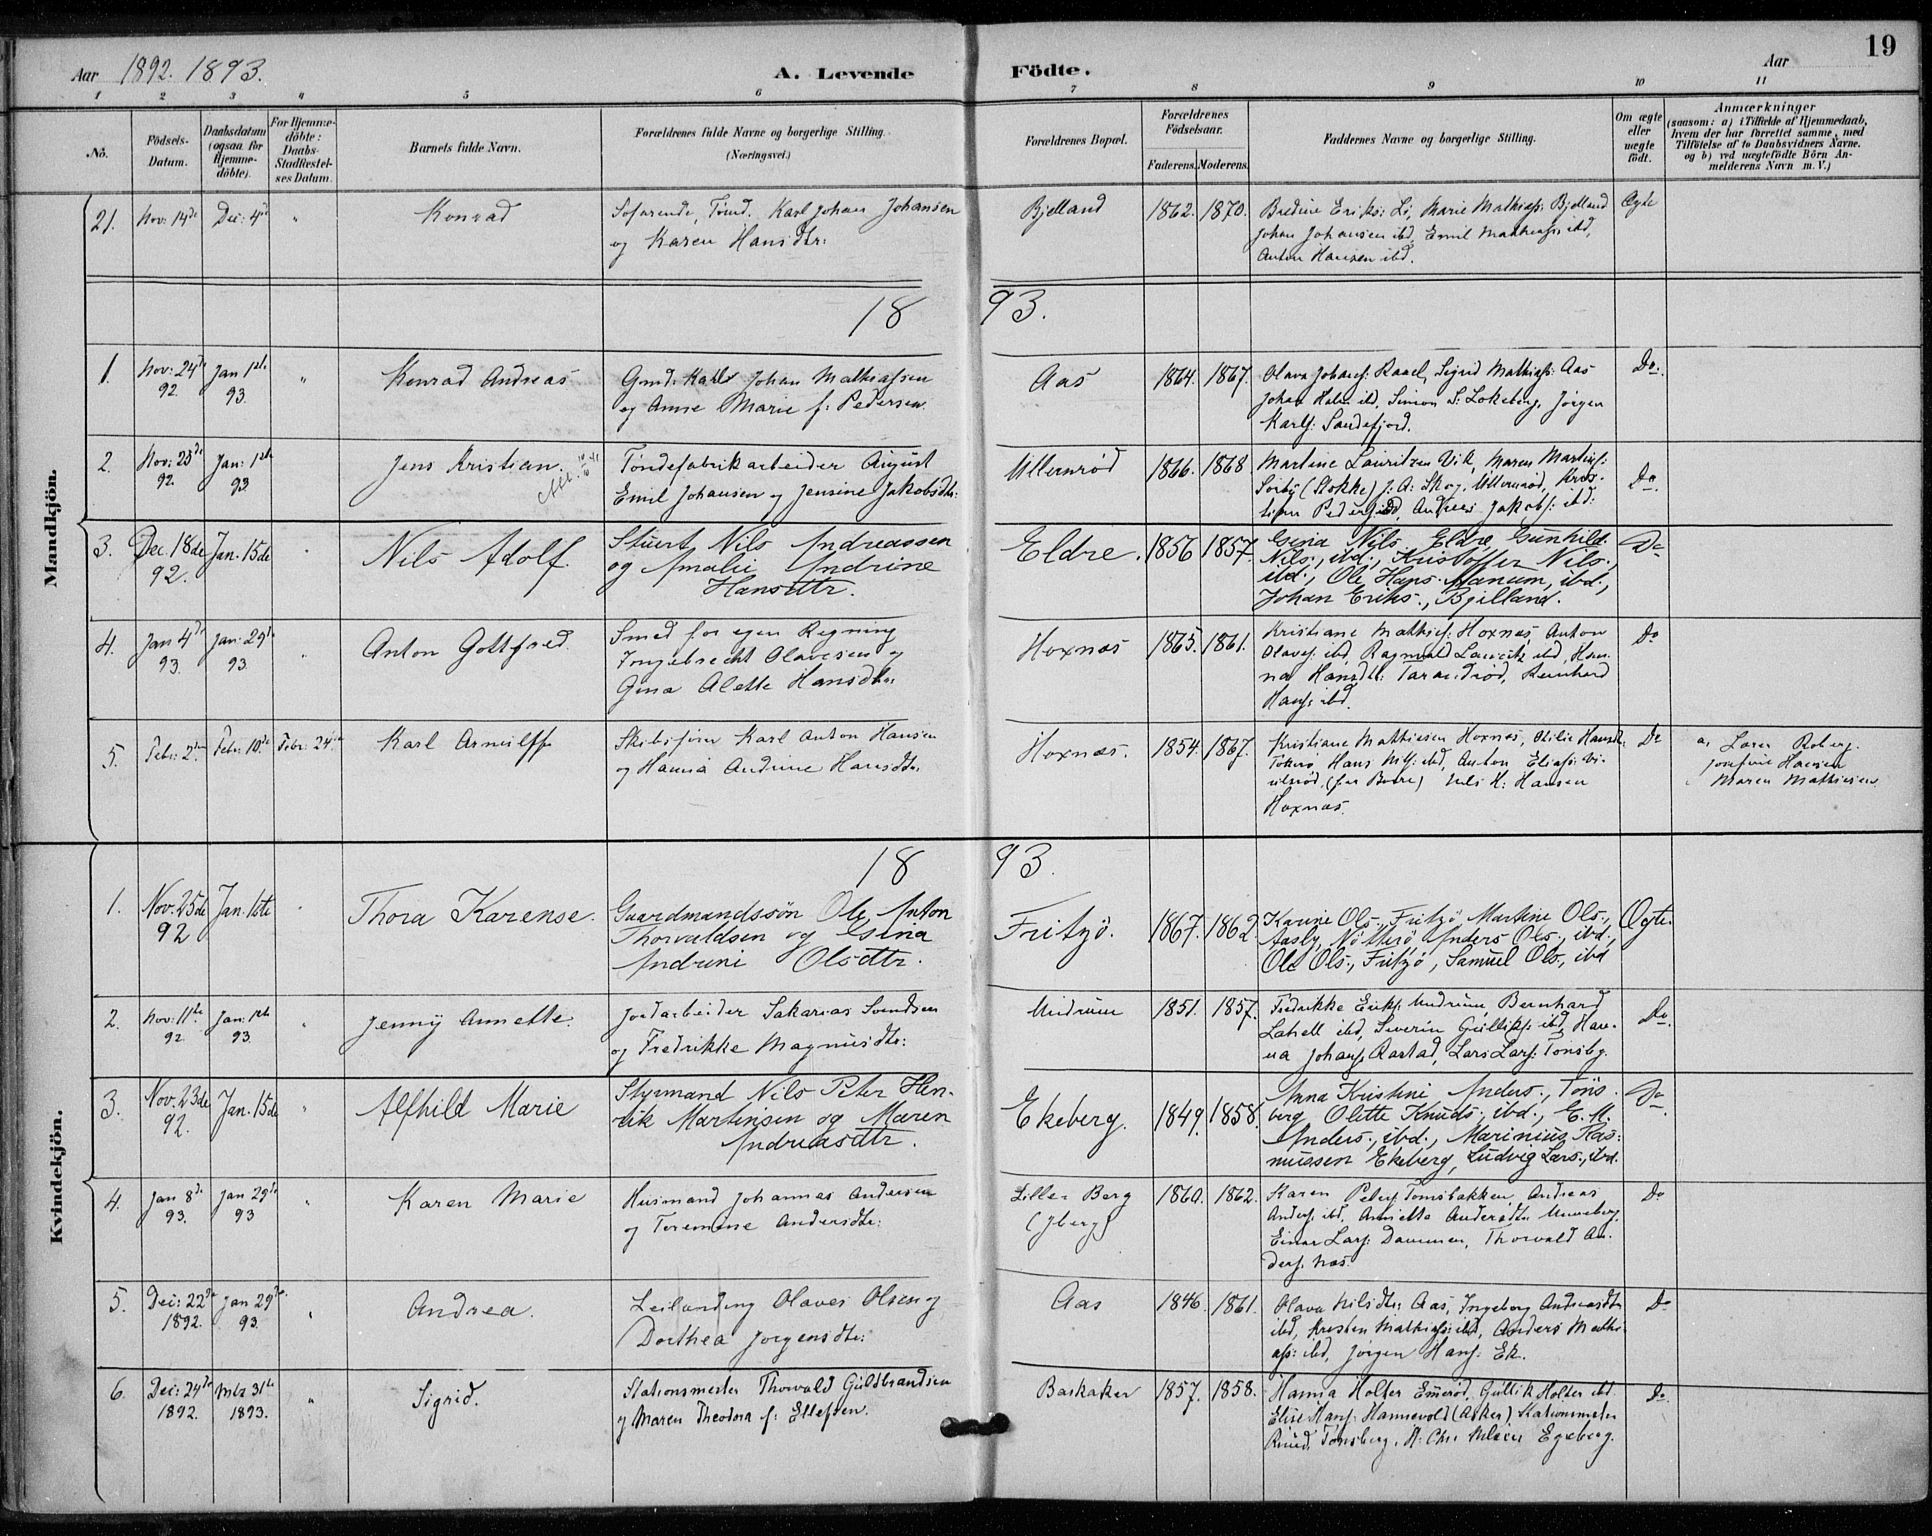 19
Aar 1892. 1893.
A. Levende Födte.
Aar
1 2 3 4 5 6 7 8 9 10 11
No.
Födsels-
Datum.
Daabsdatum
(ogsaa for
Hjemme-
döbte).
For Hjemme-
döbte:
Daabs-
Stadfæstel-
ses Datum.
Barnets fulde Navn.
Forældrenes fulde Navne og borgerlige Stilling.
(Næringsvei.)
Forældrenes Bopæl.
Forældrenes
Födselsaar.
Faderens. Moderens.
Faddernes Navne og borgerlige Stilling.
Om ægte
eller
uægte
födt.
Anmærkninger
(saasom: a) i Tilfælde af Hjemmedaab,
hvem der har forrettet samme, med
Tilföielse af to Daabsvidners Navne.
og b) ved uægtefödte Börn An-
melderens Navn m. V.)
Mandkjön.
21. Nov: 14de Dec: 4de " Konrad
Søfarende, Tømd. Karl Johan Johansen
og Karen Hansdtr:
Bjelland 1862. 1870.
Bredine Eriks: Li, Marie Mathias: Bjelland
Johan Johansen ibd, Emil Mathias: ibd,
Anton Hansen ibd.
Ægte
1893.
1. Nov: 24de 92. Jan 1ste 93. " Konrad Andreas
Gmd. Karl Johan Mathiasen
og Anne Marie f: Pedersen
Aas 1864. 1867.
Olava Johans: Raael, Sigrid Mathias: Aas
Johan Holm ibd, Simon S: Lokeberg, Jørgen
Karls: Sandefjord.
Do.
2. Nov: 25de 92. Jan: 1ste 93. Jens Kristian.
Tøndefabrikarbeider August
Emil Johansen og Jensine Jakobsdtr:
Ullernrød 1866. 1868
Martine Lauritzen Vik, Maren Martins:
Sørby (Stokke) J. A: Skog, Ullernrød, Kris-
tian Peders ibd, Andreas Jakobs: ibd:
Do.
3. Dec. 18de 92. Jan. 15de " Nils Adolf.
Stuert Nils Andreassen
og Amalie Andrine
Hansdttr.
Eldre. 1856 1857.
Gena Nils. Eldre Gunhild
Nils., ibd., Kristoffer Nils.,
ibd., Ole Hans. Manum, ibd.,
Johan Eriks., Bjelland.
Do
4. Jan 4de 93. Jan: 29de 93 " Anton Gottfred.
Smed for egen Regning
Ingebrecht Olavesen og
Gina Alette Hansdtr.
Hoxnæs 1865. 1861.
Kristiane Mathis: Hoxnæs, Anton
Olavs: ibd, Ragnvald Lauritz ibd, Han-
na Hansdt: Tarandrød, Bernhard
Hans: ibd.
Do
5. Febr: 2den Febr: 10de Febr: 24de Karl Arnulff
Skibsfører Karl Anton Hansen
og Hanna Andrine Hansdtr.
Hoxnæs. 1854. 1867.
Kristiane Mathiesen Hoxnæs, Otilie Hansdtr.
Hans ibd, Anton Elias:
Nils H: Hansen
Hoxnæs.
Do
a,
Josefine Hansen
Maren Mathiesen
1893.
Kvindekjön.
1. Nov. 25de 92 Jan. 1ste " Thora Karense.
Gaardmandssön Ole Anton
Thorvaldsen og Gina
Andrine Olsdttr.
Fritzö. 1867. 1862
Karine Ols., Fritzö Martine Ols.,
Aasby, Nötterö, Anders Ols., ibd.,
Ole Ols., Fritzö, Samuel Ols., ibd
Ægte.
2. Nov: 11te 92. Jan: 1ste 93. " Jenny Annette.
Jordarbeider Sakarias Svendsen
og Fredrikke Magnusdtr:
Undrum 1851. 1857.
Fredrikke Eriks: Undrum, Bernhard
Labell ibd, Severin Gulliks: ibd, Han-
na Johans: Aarstad, Lars Lars: Tønsbg.
Do.
3. Nov. 23de 92. Jan. 15de " Alfhild Marie
Styrmand Nils Peter Hen-
rik Martinsen og Maren
Andreasdttr.
Ekeberg. 1849. 1858.
Anna Kristine Anders., Töns-
berg Olette Knuds., ibd., E. M.
Anders., ibd., Marinius Ras-
mussen Ekeberg, Ludvig Lars., ibd.
Do
4. Jan 8de 93. Jan 29de 93 " Karen Marie
Husmand Johannes Andersen
og Teremine Andersdtr:
Lille-Berg
(Yberg) 1860. 1862.
Karen Peders: Tomsbakken, Andreas
Anders: ibd, Anniette Andersdtr Unneberg,
Einar Lars: Dammen, Thorvald An-
ders: Næs.
Do
5. Dec: 22de 1892. Jan 29de 93. " Andrea.
Leilænding Olaves Olsen og
Dorthea Jørgensdtr:
Aas 1846. 1861.
Olava Nilsdtr: Aas, Ingeborg Andreasdtr
ibd, Kresten Mathias: ibd, Anders Mathi-
as: ibd, Jørgen Hans: Ek.
Do
6. Dec: 24de 1892. Mts 31te 1893. " Sigrid.
Stationsmester Thorvald Guldbrandsen
og Maren Theodora f: Ellefsen.
Barkaker 1857. 1858.
Hanna Holter Emerød, Gullik Holter ibd.
Elise Hans: Hannevold (Asker) Stationsmester
Ruud, Tønsberg, Egeberg.
Do